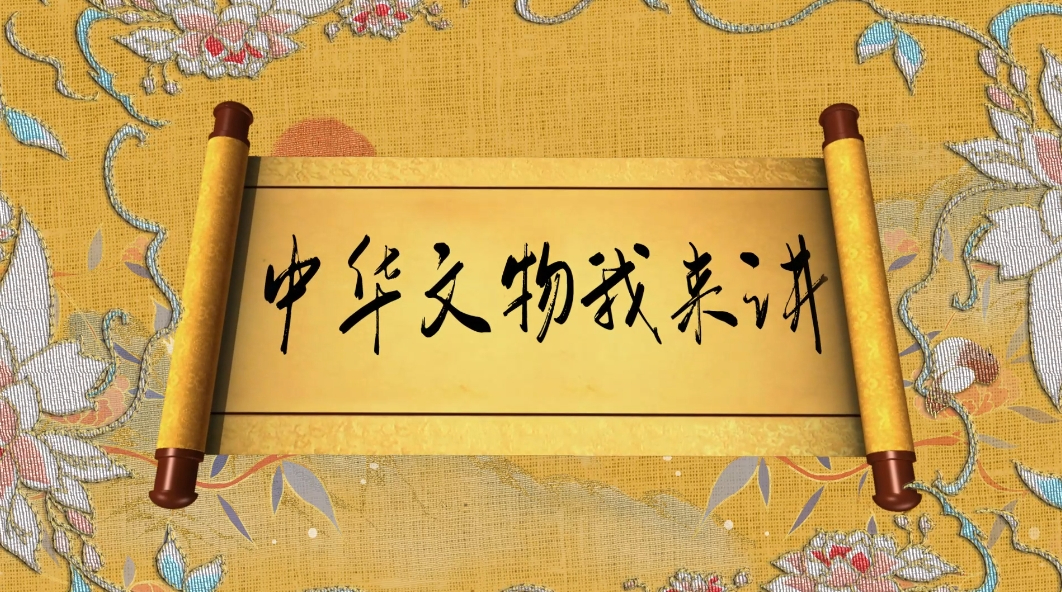 中华文物我来讲